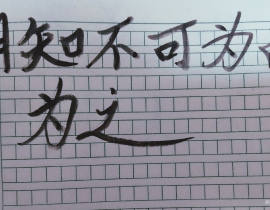 知不可为
为之